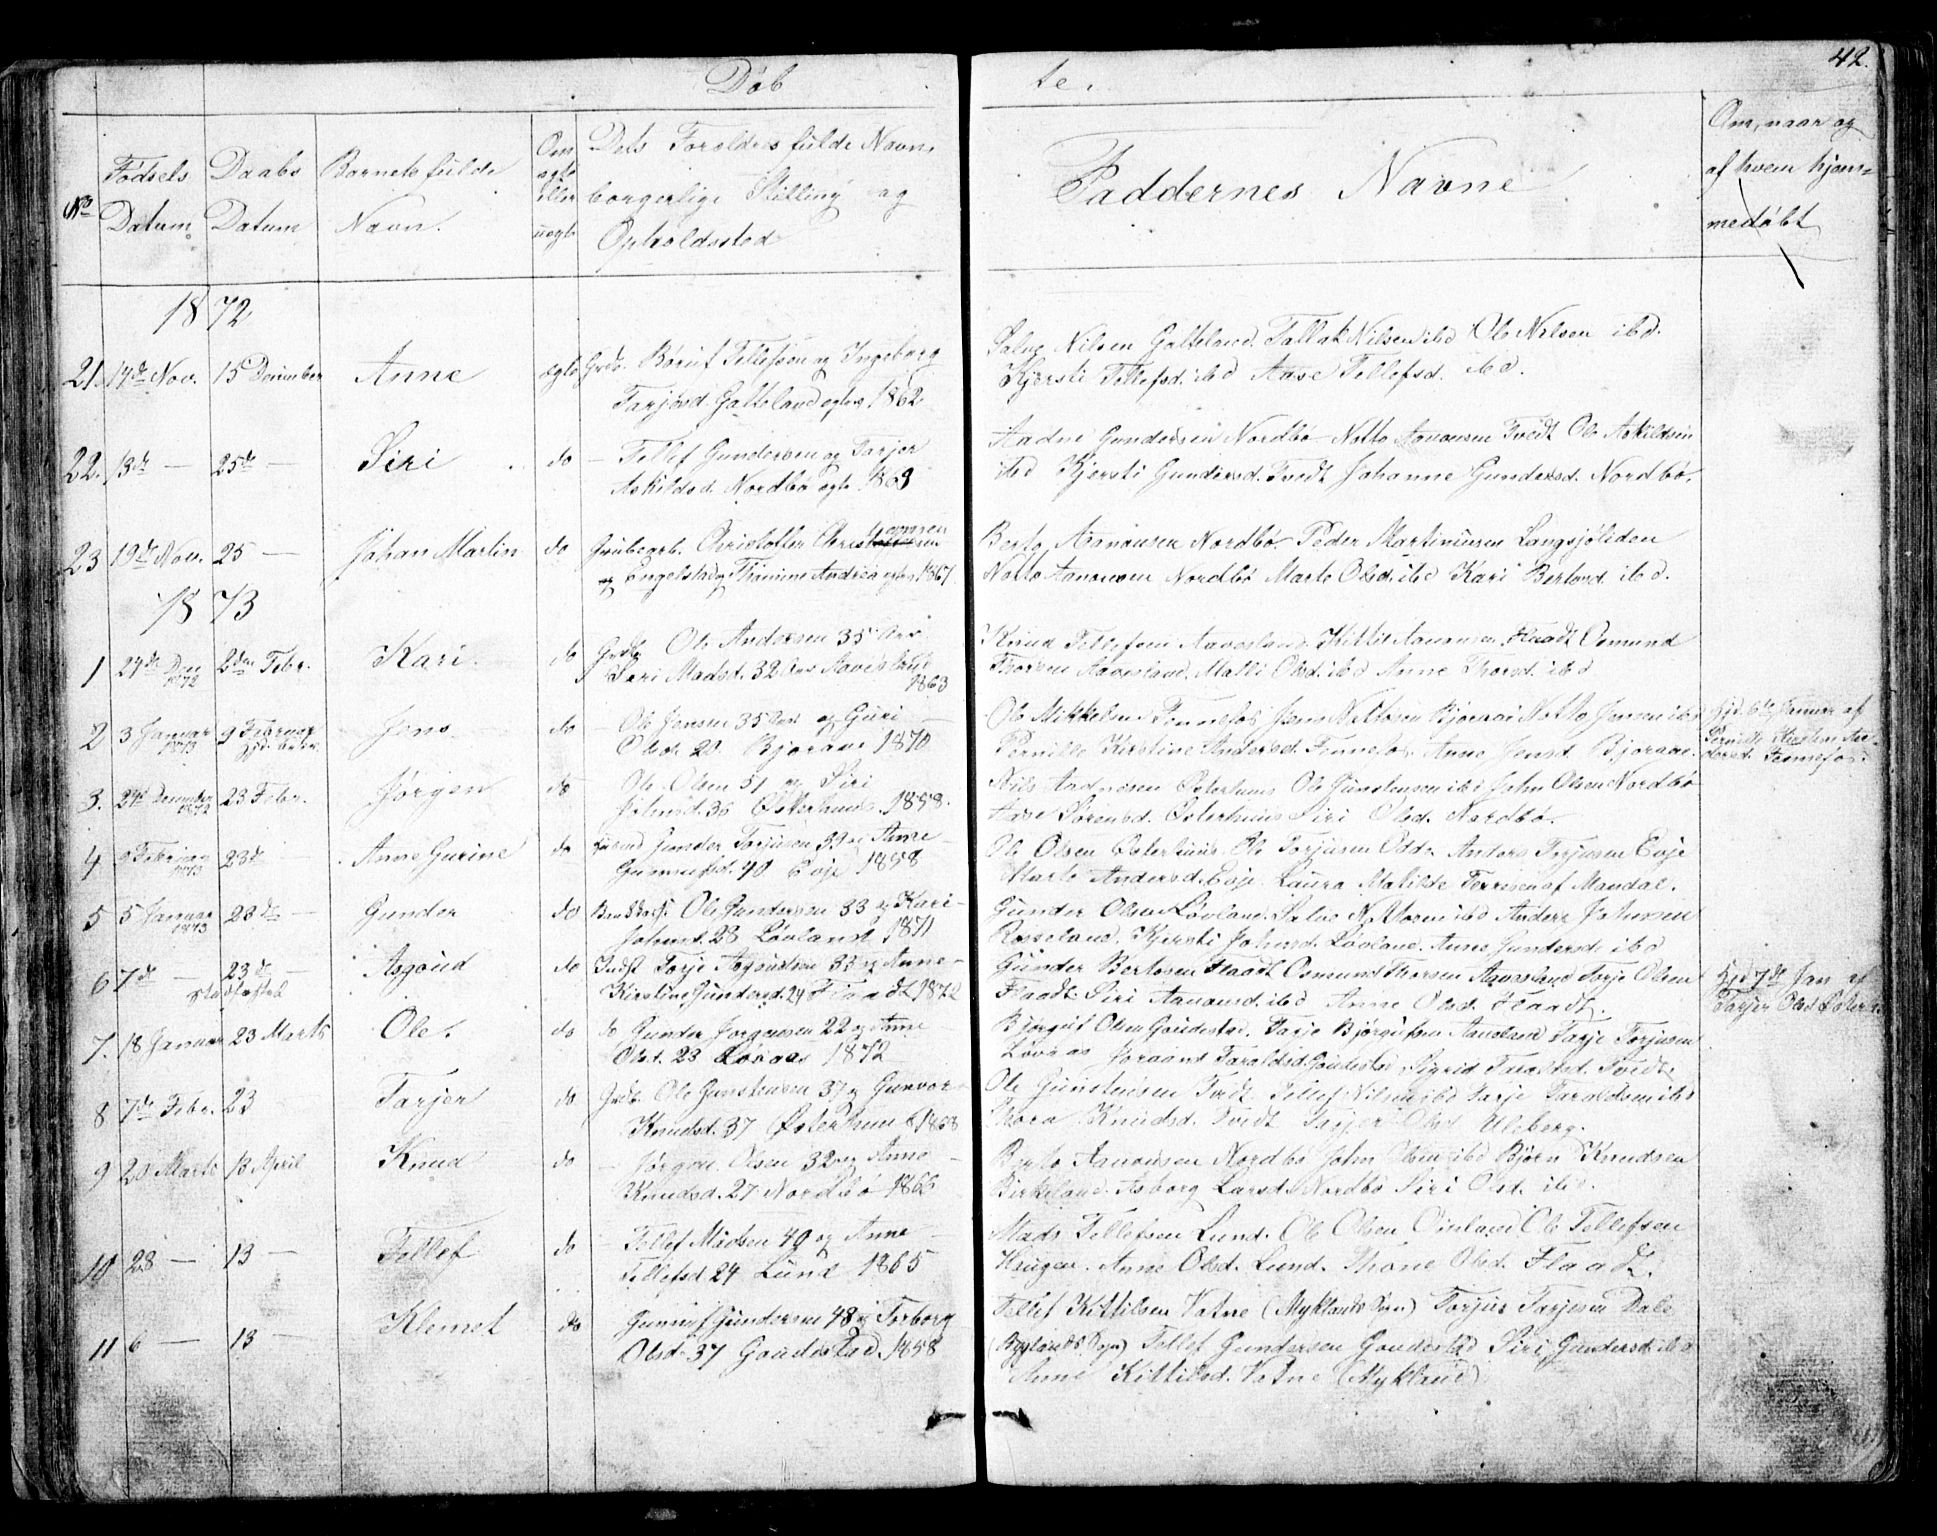 Døb te.
42.
No
Fødsels Datum
Daabs Datum
Barnets fulde Navn.
Om ægte eller uægte
Dets Foreldres fulde Navn,
borgerlige Stilling og
Opholdssted
Faddernes Navne
Om, naar og
af hvem hjem=
medøbt
1872
21. 14de Nov. 15 December Anne ægte Grdb. Børuf Tellefsen og Ingeborg
Tarjesd. Galteland egtev. 1862
Salve Nilsen Galteland. Tallak Nilsen ibd Ole Nilsen ibd.
Kjersti Tellefsd. ibd Aase Tellefsd. ibd.
22. 13de — 25de — Siri do — Tellef Gundersen og Tarjer
Askildsd. Nordbø egtv 1869
Aadne Gundersen Nordbø Notto Aanonsen Tvedt Ole Askildsen
ibd Kjersti Gundersd. Tvedt Johanne Gundersd. Nordbø.
23 19de Nov. 25 — Johan Martin do Grubearb. Christoffer
og Engelstad Andrea egtev 1867.
Berto Aanonsen Nordbø. Peder Martinusen Langsjøliden
Notto Aanonsen Nordbø Marte Olsd. ibd Kari Bertosd. ibd.
1873
1 24de Dec 1872 2den Febr. Kari. do Grdb. Ole Andersen 35 Aar
Siri Madsd. 32 Aar Aavesland
1863
Knud Tellefsen Aavesland. Kittil Aanonsen Flaadt Osmund
Thorsen Aavesland. Malli Olsd. ibd Anne Thorsd. ibd
2 3 Januar 1873 9 Februar Jens do — Ole Jensen 35 Aar og Guri
Olsd. 20 Bjoraae 1870
Ole Mikkelsen Fennefos Jens Nottosen Bjoraae Notto Jensen ibd
Pernille Kirstine Andersd. Fennefos. Anne Jensd Bjoraae.
Hjd. 6te Januar af
Pernille Kirstine An=
dersd. Fennefos.
3. 24de December 1872 23 Febr. Jørgen do Ole Olsen 51 og Siri
Johnsd. 36 Østerhuus. 1858.
Nils Andersen Østerhuus Ole Gunstensen ibd John Olsen Nordbø
Aase Sørensd. Østerhuus Siri Olsd. Nordbø.
4 Februar 1873 23de Anne Gurine do Gunder Torjusen 39 og Anne
Gunnufsd. 40 Evje 1858
Ole Olsen Østerhuus. Ole Torjusen Odde Anders Torjusen Evje
Marte Andersd. Evje. Laura Matilde Terresen af Mandal.
5 5 Januar 1873 23de — Gunder do Ole Gundersen 33 og Kari
Johnsd. 23 Løvland 1871
Gunder Olsen Løvland. Salve N. Moen ibd Anders Johnsen
Rosseland. Kjersti Johnsd. Løvland. Anne Gundersd. ibd
6 7de — 23de Stadfæstet Asgoud do Indst Torje Asgoudsen 33 og Anne
Kirstine Gundersd. 24 Flaadt 1872
Gunder Bertosen Flaadt Osmund Thorsen Aavesland Torje Olsen
Flaadt. Siri Aanonsd. ibd Anne Olsd. Flaadt.
Hjd 7de Jan af
Tarjer Olsd
7. 18 Januar 23 Marts Ole. do do Gunder Jørgensen 22 og Anne
Olsd. 23 Løvaas 1872
Bjørguf Olsen Goudestad. Tarje Bjørgufsen Aaneland Tarje Torjusen
Løvaas Joraand Taraldsd. Goudestad, Sigrid Tarjesd. Tvedt.
8 7de Febr. 23 Tarjer do Grdb. Ole Gunstensen 37 og Gunvor
Knudsd. 37 Østerhuus 1868
Ole Gunstensen Tvedt. Tellef Nilsen ibd Tarje Taraldsen ibd
Thora Knudsd. Tvedt Tarjer Olsd Uleberg.
9 20 Marts 13 April Knud do — Jørgen Olsen 32 og Anne
Knudsd. 27 Nordbø 1866
Berto Aanonsen Nordbø John Olsen ibd Bjørn Knudsen
Birkeland. Asborg Larsd. Nordbø Siri Olsd. ibd.
10 28 — 13 — Tellef do Tellef Madsen 40 og Anne
Tellefsd 24 Lund 1865
Mads Tellefsen Lund. Ole Olsen Ole Tellefsen
Haugen. Anne Olsd. Lund. Thone Olsd. Flaadt.
11 6 — 13 — Klemet do Gunnuf Gundersen 48 og Torborg
Olsd. 37 Goudestad. 1858
Tellef Kittilsen Vatne (Myklands Sogn) Torjus Tarjesen Dale
(Byglands Sogn) Tellef Gundersen Goudestad Siri Gundersd. ibd
Anne Kittilsd. Vatne (Mykland)